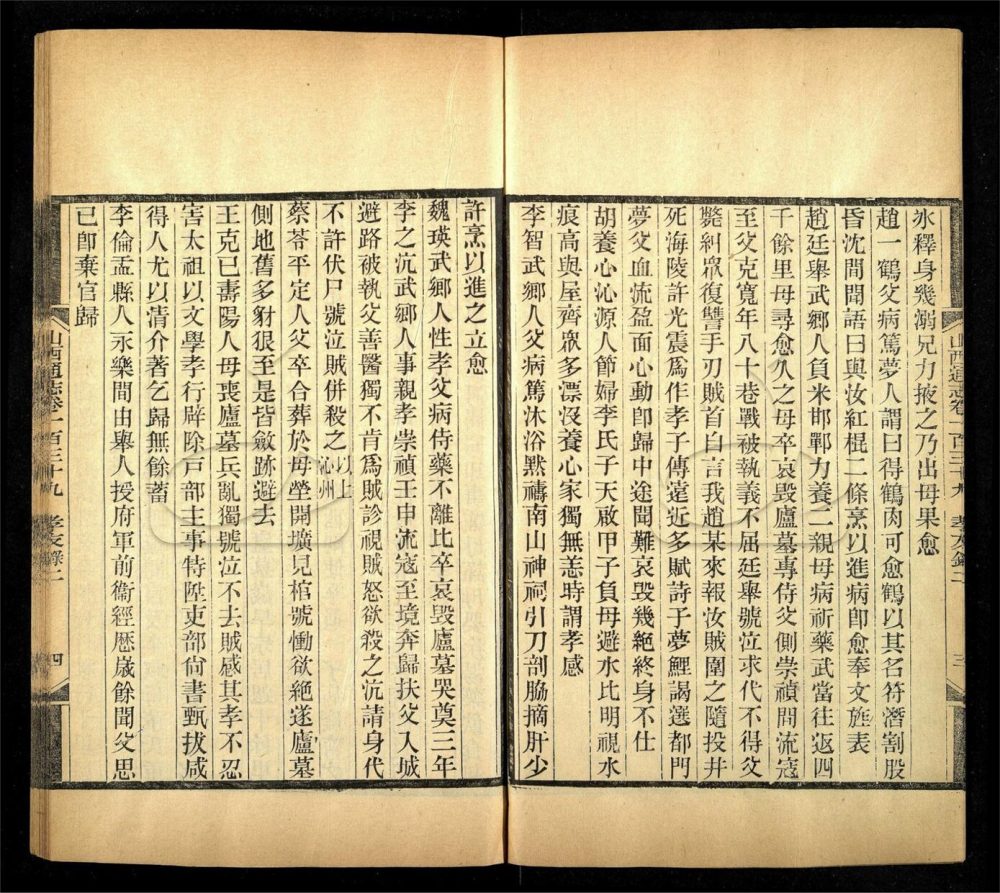 氷釋身幾溺兄力掖之乃出母果愈
趙一鶴父病篤夢人謂曰得鶴肉可愈鶴以其名符潛割股
昏沈間聞語曰與汝紅棍二條烹以進病卽愈奉文旌表
趙廷舉武鄉人負米邯鄲力養二親母病祈藥武當往返四
千餘里母尋愈久之母卒哀毀廬墓專侍父側崇禎間流寇
至父克寬年八十巷戰被執義不屈廷舉號泣求代不得父
斃糾眾復讐手刃賊首自言我趙某來報汝賊圍之隨投井
死海陵許光震爲作孝子傳遠近多賦詩子夢鯉謁選都門
夢父血流盈面心動卽歸中途聞難哀毀幾絕終身不仕
胡養心沁源人節婦李氏子天啟甲子負母避水比明視水
痕高與屋齊眾多漂沒養心家獨無恙時謂孝感
李智武鄉人父病篤沐浴默禱南山神祠引刀剖脇摘肝少
山西通志卷一百三十九 孝友錄二 三
許烹以進之立愈
魏瑛武鄉人性孝父病侍藥不離比卒哀毀廬墓哭奠三年
李之沆武鄉人事親孝崇禎壬申流寇至境奔歸扶父入城
避路被執父善醫獨不肯爲賊診視賊怒欲殺之沆請身代
不許伏尸號泣賊併殺之以上沁州
蔡荅平定人父卒合葬於母塋開壙見棺號慟欲絕遂廬墓
側地舊多豺狼至是皆斂跡避去
王克已壽陽人母喪廬墓兵亂獨號泣不去賊感其孝不忍
害太祖以文學孝行辟除戶部主事特陞吏部尙書甄拔咸
得人尤以清介著乞歸無餘蓄
李倫盂縣人永樂間由舉人授府軍前衞經歷歲餘聞父思
已卽棄官歸
山西通志卷一百三十九 孝友錄二 四